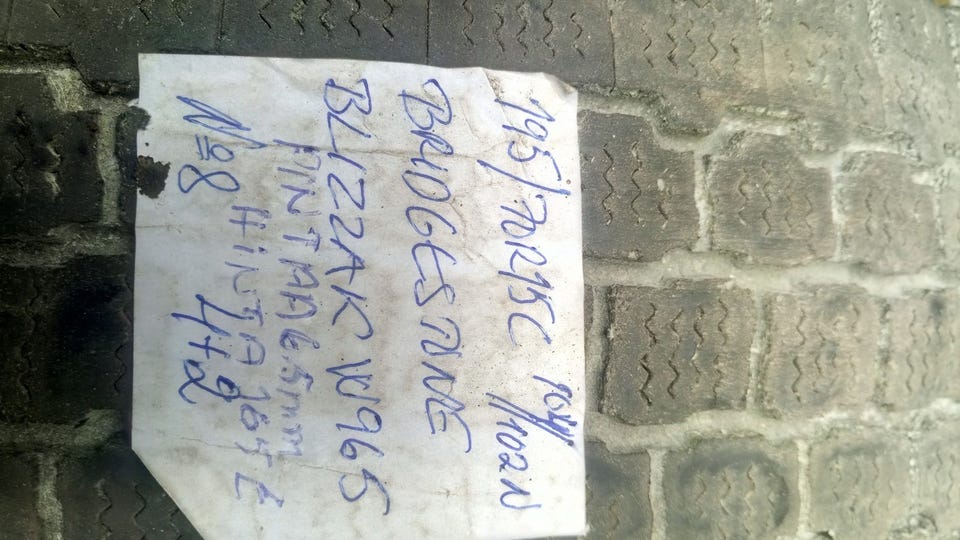 195/70R15C 104/102N
BRIDGESTONE
BLIZZAK W965
PINTAA 6.5mm
HiNTA
№8 4+2